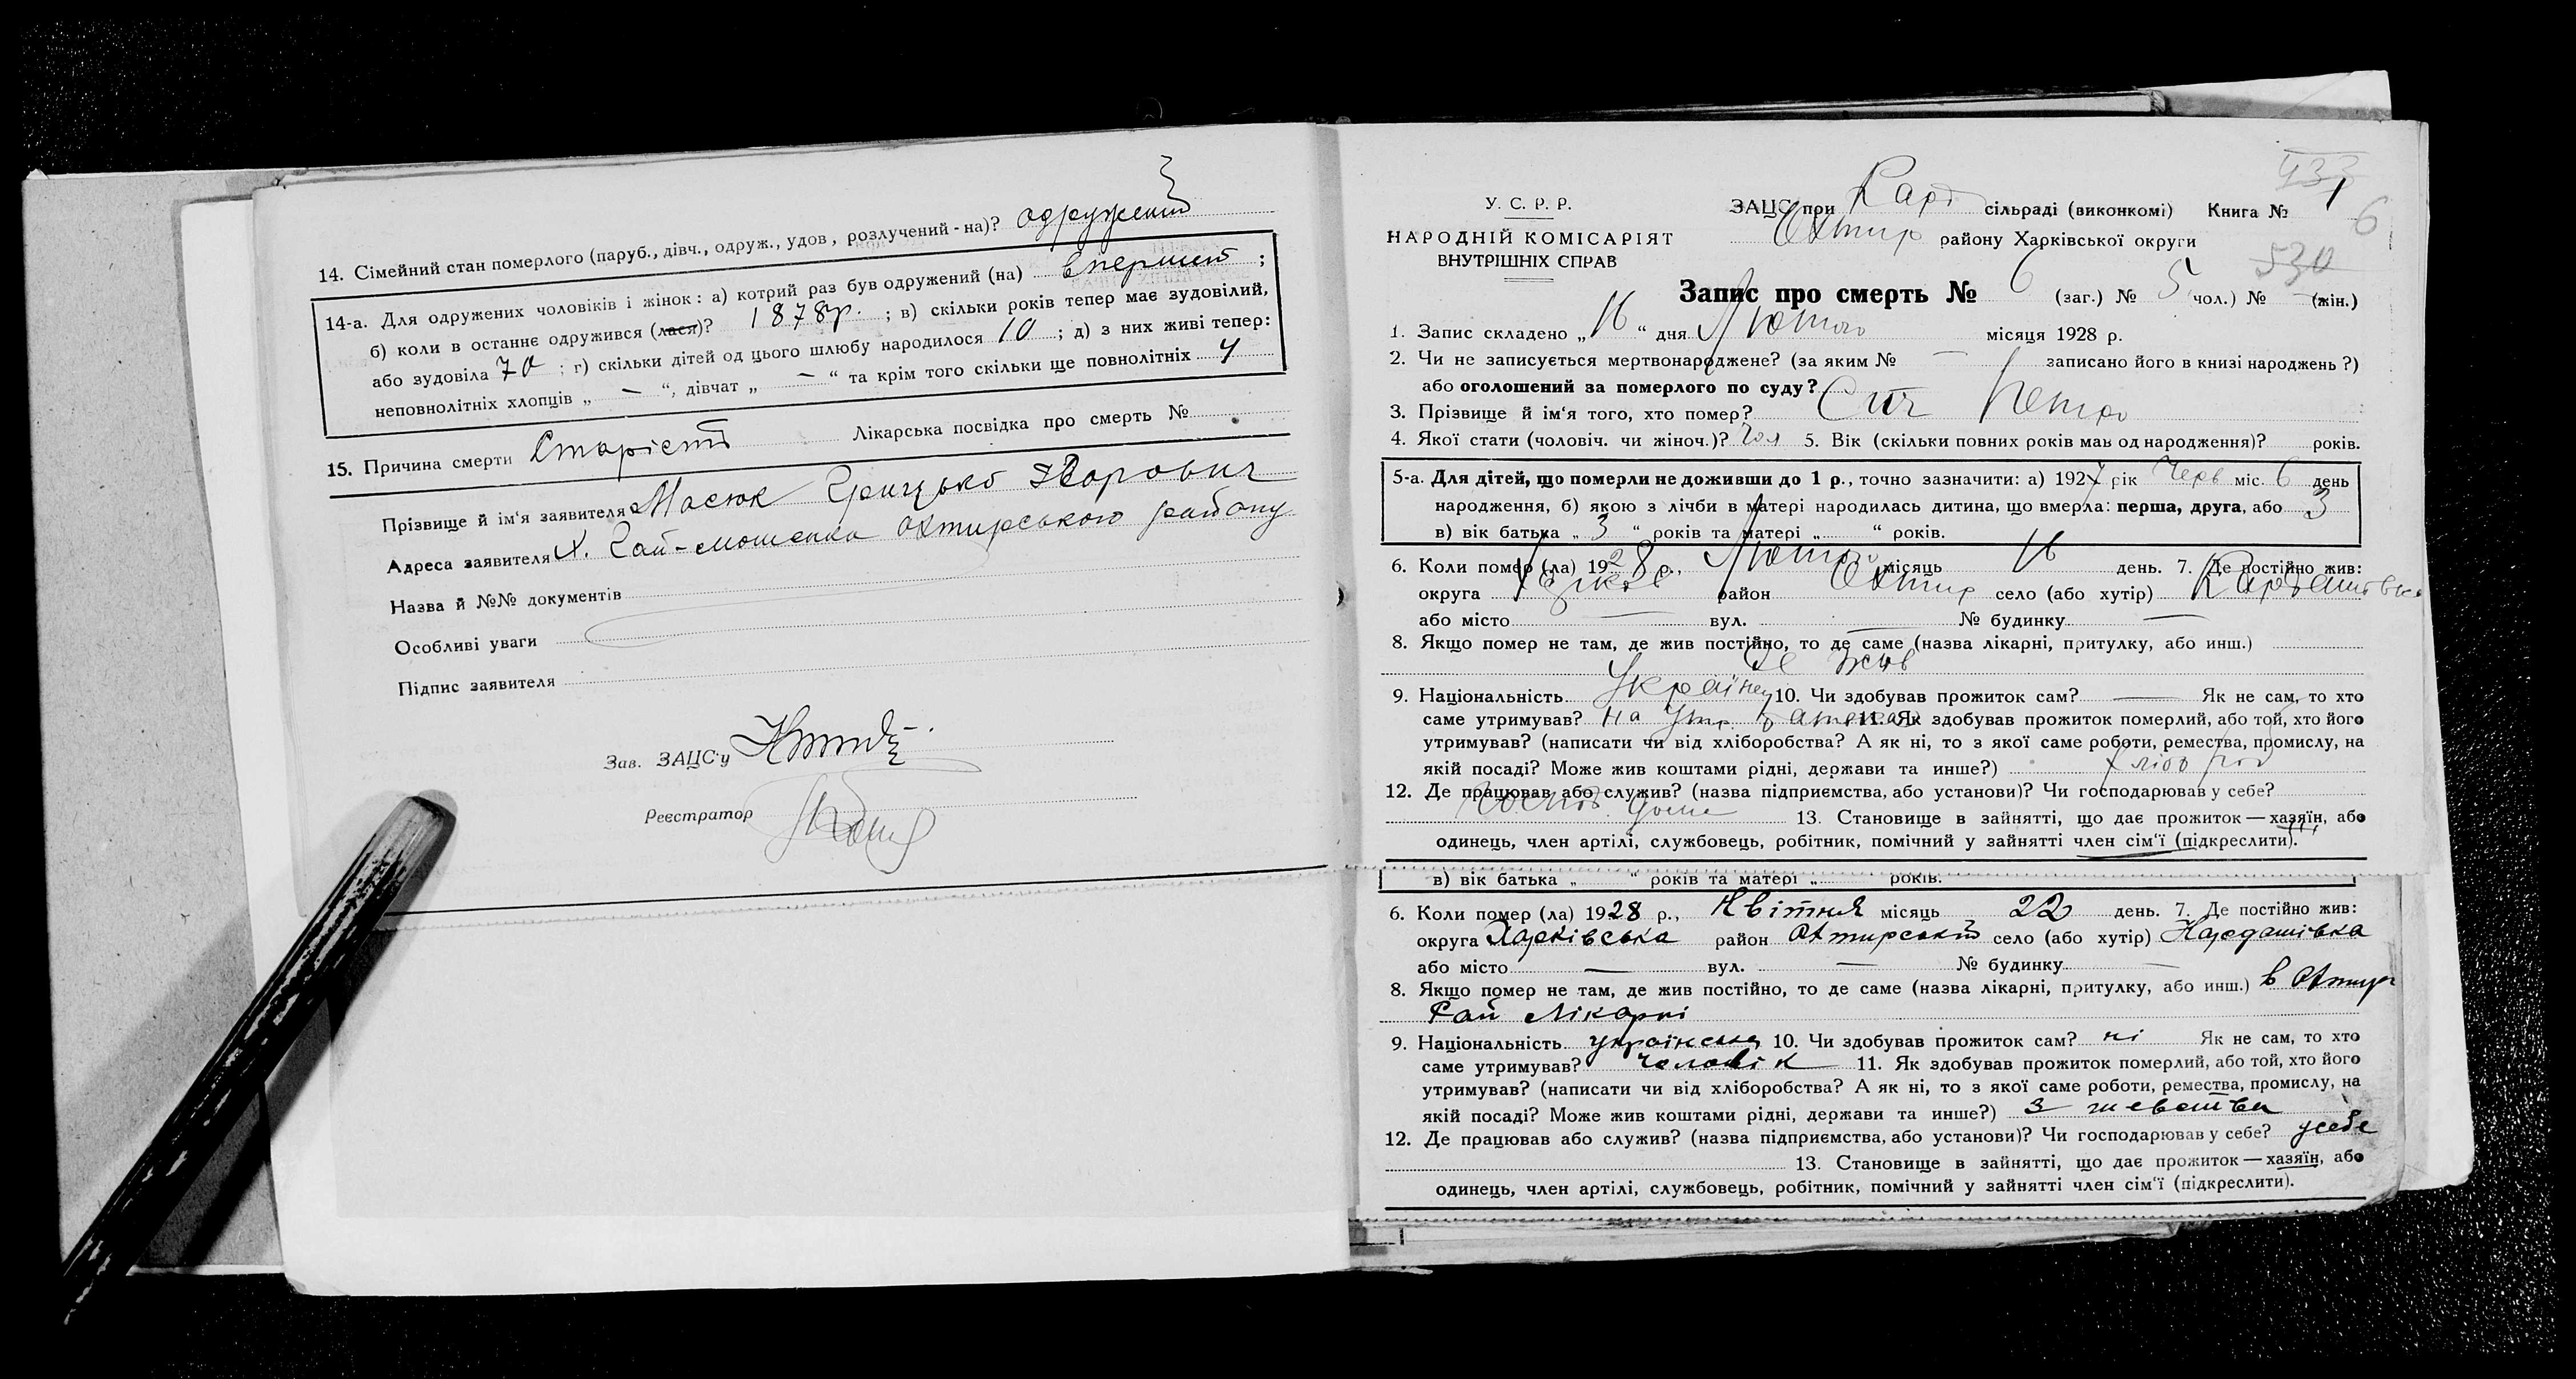 14. Сімейний стан померлого (паруб., дівч., одруж., удов, розлучений-на)? одружений
14-а. Для одружених чоловіків і жінок: а) котрий раз був одружений (на) вперший ;
б) коли в останнє одружився (лася)? 1878р. ; в) скільки років тепер має зудовілий,
або зудовіла 70 ; г) скільки дітей од цього шлюбу народилося 10 ; д) з них живі тепер:
неповнолітніх хлопців „ — “, дівчат „ — “ та крім того скільки ще повнолітніх 4
15. Причина смерти Старість Лікарська посвідка про смерть №
Прізвище й ім‘я заявителя Масюк Грицько
Адреса заявителя х. Гай-мошенка Охтирського району
Назва й №№ документів
Особливі уваги
Підпис заявителя
Зав. ЗАЦС‘у
Реєстратор
433
6
530
У. С. Р. Р.
НАРОДНІЙ КОМІСАРІЯТ
ВНУТРІШНІХ СПРАВ
ЗАЦС при Кард сільраді (виконкомі) Книга № 1
Охтир району Харківської округи
Запис про смерть № 6 (заг.) № 5 чол.) № — (жін.)
1. Запис складено „ 16 “ дня Лютого місяця 1928 р.
2. Чи не записується мертвонароджене? (за яким № — записано його в книзі народжень?)
або оголошений за померлого по суду?
3. Прізвище й ім‘я того, хто помер? Сич Петро
4. Якої стати (чоловіч. чи жіноч.)? Чол 5. Вік (скільки повних років мав од народження)? років.
5-а. Для дітей, що померли не доживши до 1 р., точно зазначити: а) 1927 рік Черв міс. 6 день
народження, б) якою з лічби в матері народилась дитина, що вмерла: перша, друга, або 3
в) вік батька „ 3 “ років та матері „ “ років.
6. Коли помер (ла) 1928 р., Лютого місяць 16 день. 7. Де постійно жив:
округа район Охтир село (або хутір) Кардашівка
або місто — вул. — № будинку —
8. Якщо помер не там, де жив постійно, то де саме (назва лікарні, притулку, або инш.)
де жив
9. Національність Українец 10. Чи здобував прожиток сам? — Як не сам, то хто
саме утримував? на утр. батька 11. Як здобував прожиток померлий, або той, хто його
утримував? (написати чи від хліборобства? А як ні, то з якої саме роботи, ремества, промислу, на
якій посаді? Може жив коштами рідні, держави та инше?) хлібороб
12. Де працював або служив? (назва підприємства, або установи)? Чи господарював у себе?
Господ. дома 13. Становище в зайнятті, що дає прожиток — хазяїн, або
одинець, член артілі, службовець, робітник, помічний у зайнятті член сім‘ї (підкреслити).
в) вік батька „ “ років та матері „ років.
6. Коли помер (ла) 1928 р., Квітня місяць 22 день. 7. Де постійно жив:
округа Харківська район Охтирський село (або хутір) Кардашівка
або місто — вул. — № будинку —
8. Якщо помер не там, де жив постійно, то де саме (назва лікарні, притулку, або инш.) в Охтир
Рай Лікарні
9. Національність українська 10. Чи здобував прожиток сам? ні Як не сам, то хто
саме утримував? чоловік 11. Як здобував прожиток померлий, або той, хто його
утримував? (написати чи від хліборобства? А як ні, то з якої саме роботи, ремества, промислу, на
якій посаді? Може жив коштами рідні, держави та инше?) З шевства
12. Де працював або служив? (назва підприємства, або установи)? Чи господарював у себе? усебе
13. Становище в зайнятті, що дає прожиток — хазяїн, або
одинець, член артілі, службовець, робітник, помічний у зайнятті член сім‘ї (підкреслити).